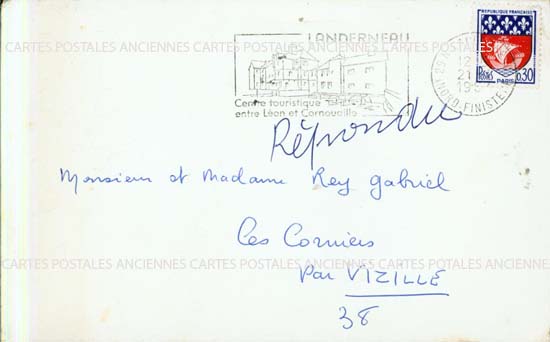 LANDERNEAU
REPUBLIQUE FRANÇAISE
POSTES 0,30
PARIS
12
21
NORD-FINISTE
Centre touristique
entre Léon et Cornouaille
Répondu
Monsieur et Madame Rey Gabriel
Les Corniers
Par VIZILLE
38
CARTES POSTALES ANCIENNES CARTES POSTALES ANCIENNES CARTES POSTALES ANCIENNES
CARTES POSTALES ANCIENNES CARTES POSTALES ANCIENNES CARTES POSTALES ANCIENNES